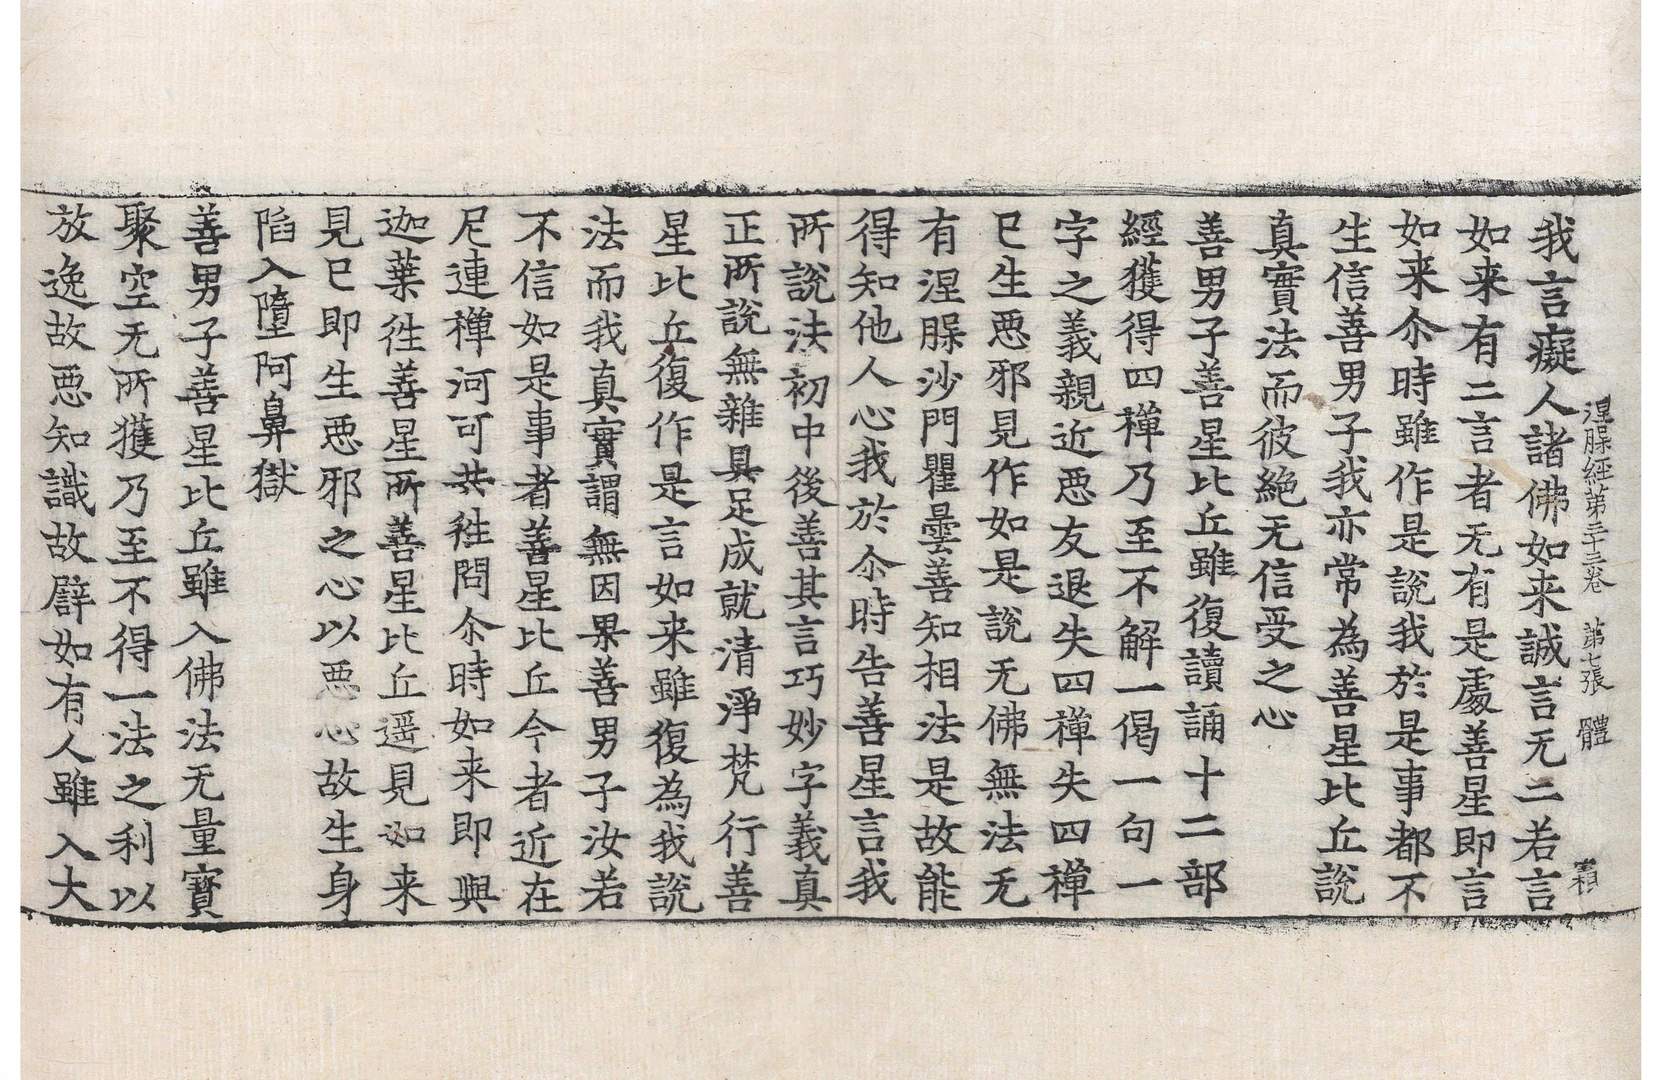 涅槃經第三十三卷 第七張 體
我言癡人諸佛如来誠言无二若言
如来有二言者无有是處善星即言
如来尒時雖作是說我於是事都不
生信善男子我亦常為善星比丘說
真實法而彼絶无信受之心
善男子善星比丘雖復讀誦十二部
經獲得四禪乃至不解一偈一句一
字之義親近恶友退失四禪失四禪
已生恶邪見作如是說无佛無法无
有涅槃沙門瞿曇善知相法是故能
得知他人心我於尒時告善星言我
所說法初中後善其言巧妙字義真
正所說無雜具足成就清淨梵行善
星比丘復作是言如来雖復為我說
法而我真實謂無因果善男子汝若
不信如是事者善星比丘今者近在
尼連禪河可共往問尒時如来即與
迦葉往善星所善星比丘遥見如来
見已即生恶邪之心以恶心故生身
陷入墮阿鼻獄
善男子善星比丘雖入佛法无量寶
聚空无所獲乃至不得一法之利以
放逸故恶知識故辟如有人雖入大